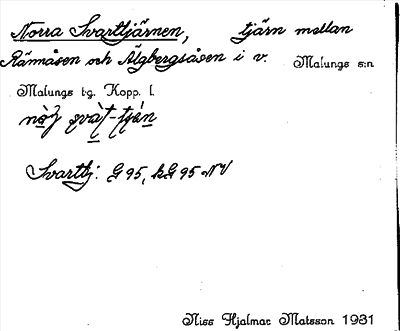 Norra Svarttjärnen, tjärn mellan
Rännåsen och Älgbergsåsen i v. Malungs s:n
Malungs tg. Kopp. l.
Svarttj: G 95, kG 95 NV
Niss Hjalmar Matsson 1931